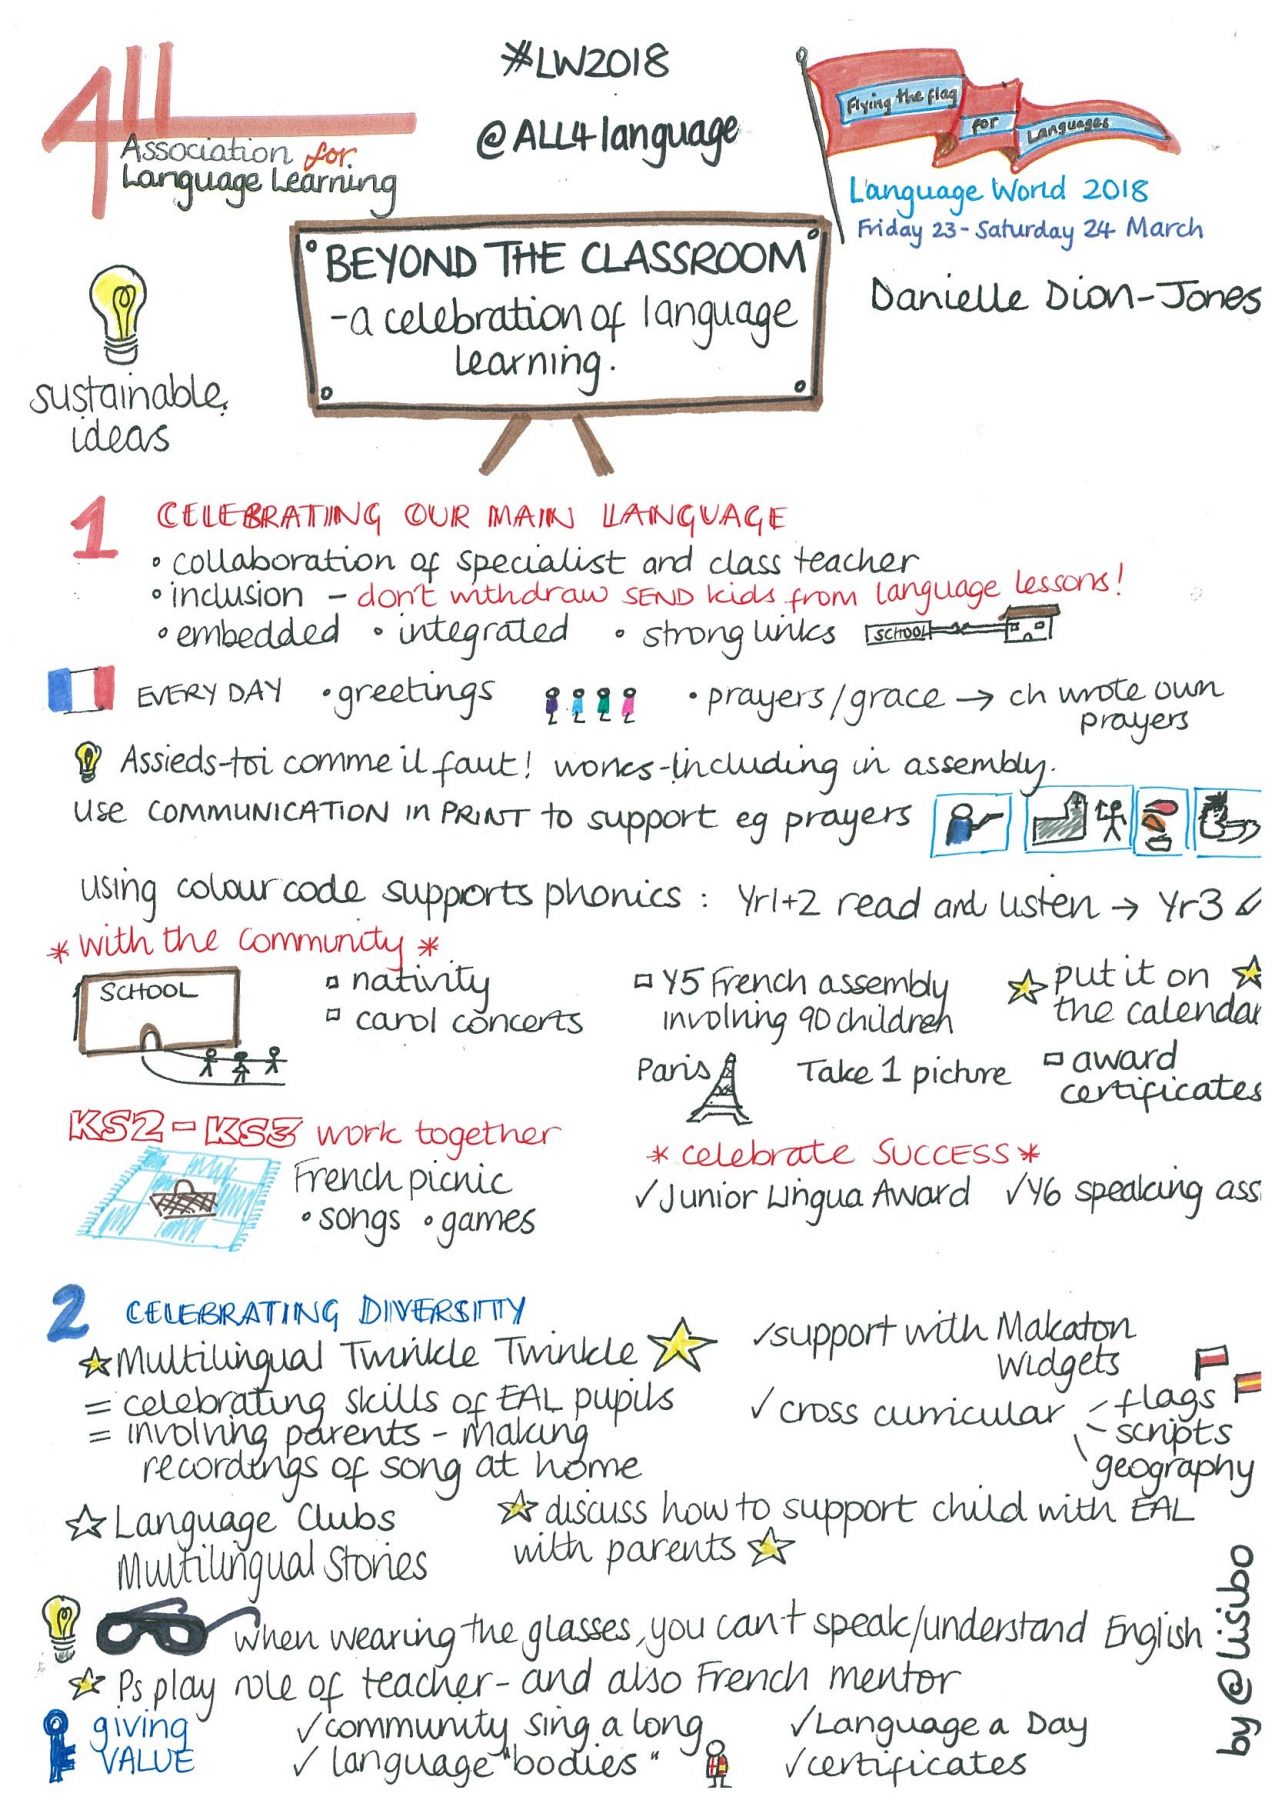 #LW2018
@ALL4language
ALL
Association for
Language Learning
Flying the flag
for
Languages
Language World 2018
Friday 23-Saturday 24 March
Danielle Dion-Jones
BEYOND THE CLASSROOM
-a celebration of language
learning.
sustainable
ideas
1 CELEBRATING OUR MAIN LANGUAGE
• collaboration of specialist and class teacher
• inclusion - don't withdraw SEND kids from language lessons!
• embedded • integrated • strong links SCHOOL
EVERY DAY • greetings • prayers/grace → ch wrote own
prayers
Assieds-toi comme il faut! works-including in assembly.
USE COMMUNICATION IN PRINT to support eg prayers
using colour code supports phonics: Yr1+2 read and listen → Yr3
* with the community *
SCHOOL
▫ nativity
▫ carol concerts
▫ Y5 French assembly
involving 90 children
put it on
the calendar
Paris Take 1 picture
▫ award
certificates
KS2-KS3 work together
French picnic
• songs • games
* celebrate SUCCESS *
✓ Junior Lingua Award ✓ Y6 speaking ass
2 CELEBRATING DIVERSITY
☆ Multilingual Twinkle Twinkle ☆
= celebrating skills of EAL pupils
= involving parents - making
recordings of song at home
✓ support with Makaton
Widgets
✓ cross curricular - flags
- scripts
\ geography
☆ Language Clubs
Multilingual Stories
☆ discuss how to support child with EAL
with parents ☆
when wearing the glasses, you can't speak/understand English
☆ Ps play role of teacher - and also French mentor
giving
VALUE
✓ community sing a long
✓ language "bodies"
✓ Language a Day
✓ certificates
by @lisibo